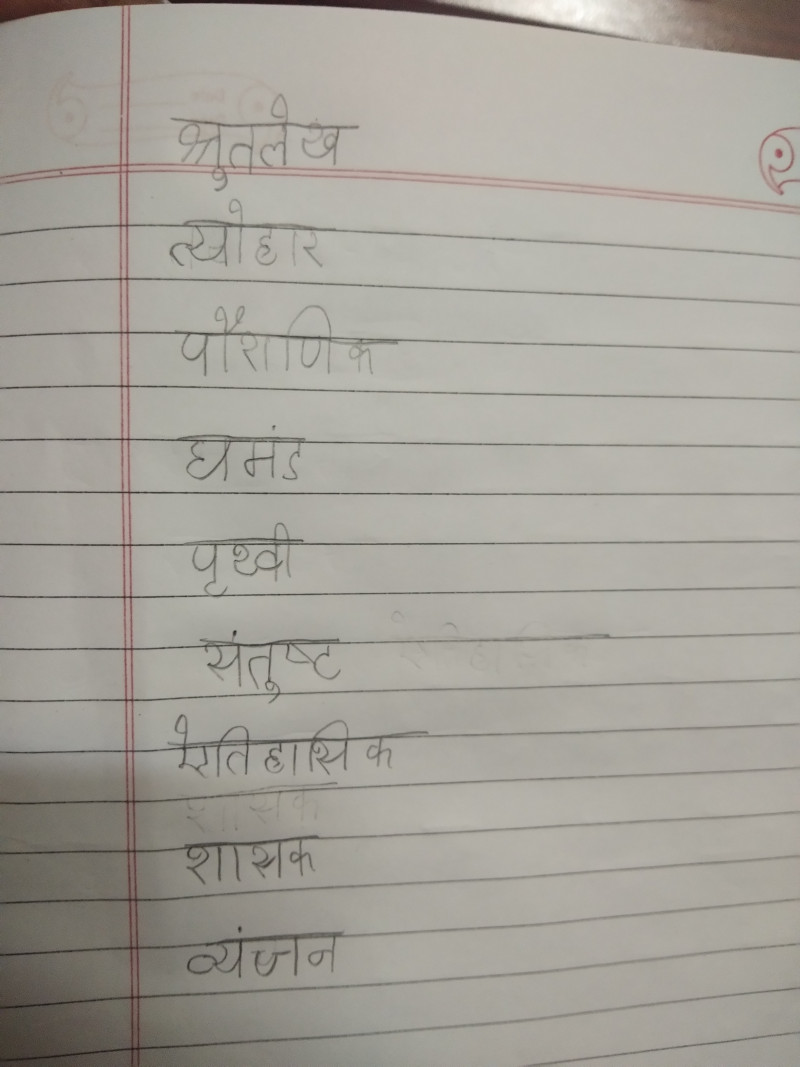 श्रुतलेख
त्योहार
पौराणिक
घमंड
पृथ्वी
संतुष्ट
ऐतिहासिक
शासक
शासक
व्यंजन